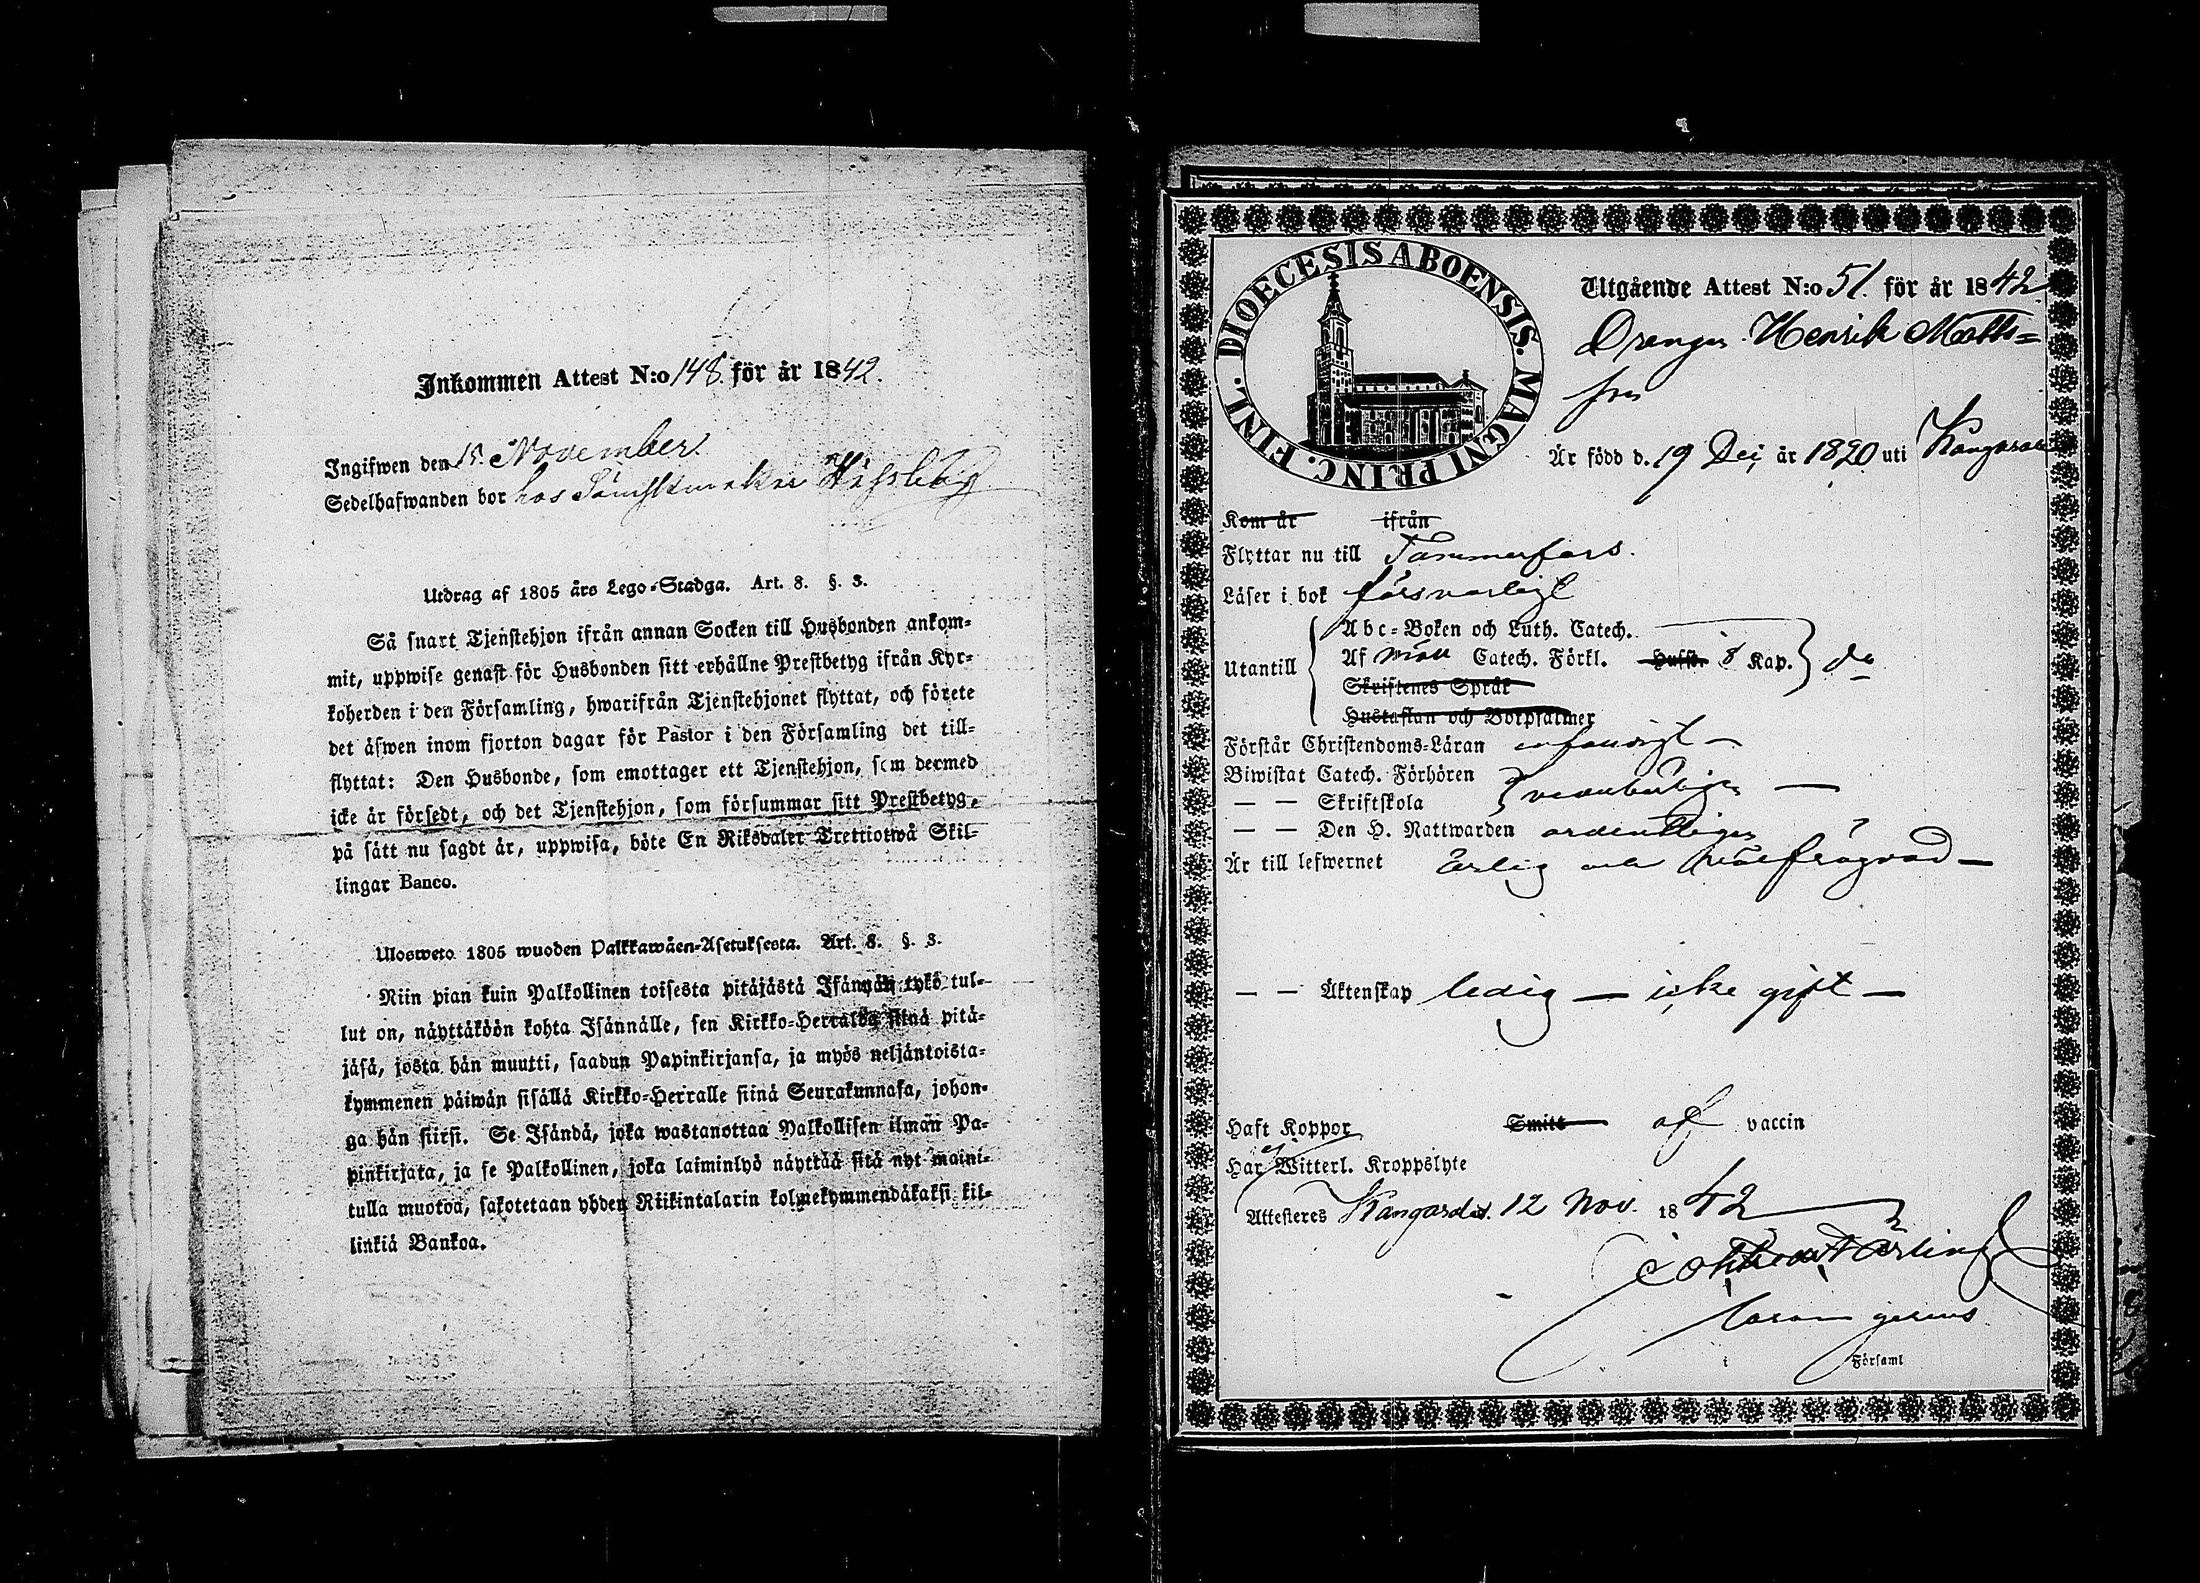 Inkommen Attest N:o 148. för år 1842.
Ingifwen den 15. November.
Sedelhafwanden bor hos
Utdrag af 1805 års Lego-Stadga. Art. 8. §. 3.
Så snart Tjenstehjon ifrån annan Socken till Husbonden ankom-
mit, uppwise genast för Husbonden sitt erhållne Prestbetyg ifrån Kyr-
koherden i den Församling, hwarifrån Tjenstehjonet flyttat, och förete
det äfwen inom fjorton dagar för Pastor i den Församling det till-
flyttat: Den Husbonde, som emottager ett Tjenstehjon, som dermed
icke är försedt, och det Tjenstehjon, som försummar sitt Prestbetyg,
på sätt nu sagdt är, uppwisa, böte En Riksdaler Trettiotwå Skil-
lingar Banco.
Ulosweto 1805 wuoden Palkkawäen-Asetuksesta. Art. 8. §. 3.
Niin pian kuin Palkollinen toisesta pitäjästä Isännän tykö tul-
lut on, näyttäköön kohta Isännälle, sen Kirkko-Herralda siinä pitä-
jäsä, josta hän muutti, saadun Papinkirjansa, ja myös neljäntoista-
kymmenen päiwän sisällä Kirkko-Herralle siinä Seurakunnasa, johon-
ga hän siirsi. Se Isändä, joka wastanottaa Palkollisen ilman Pa-
pinkirjata, ja se Palkollinen, joka laiminlyö näyttää sitä nyt maini-
tulla muotoa, sakotetaan yhden Riikintalarin kolmekymmendäkaksi kil-
linkiä Bankoa.
DIOECESIS ABOENSIS. MAGNI PRINC. FINL.
Utgående Attest N:o 51. för år 1842
Drengen Henrik Matts=
son
Är född d. 19 Dec; år 1820 uti Kangasala
Kom år ifrån
Flyttar nu till Tammerfors.
Läser i bok försvarligt
Utantill
Abc-Boken och Luth. Catech.
Af Catech. Förkl. Hufst. 8 Kap. do
Skriftenes Språk
Hustaflan och Botpsalmer
Förstår Christendoms-Läran
Biwistat Catech. Förhören
— — Skriftskola
— — Den H. Nattwarden ordentligen
Är till lefwernet ärlig och välfrägdad —
— — Äktenskap ledig — icke gift —
Haft Koppor Smitt af vaccin
Har ej Witterl. Kroppslyte
Attesteras Kangasala d. 12 Nov. 1842
i Församl